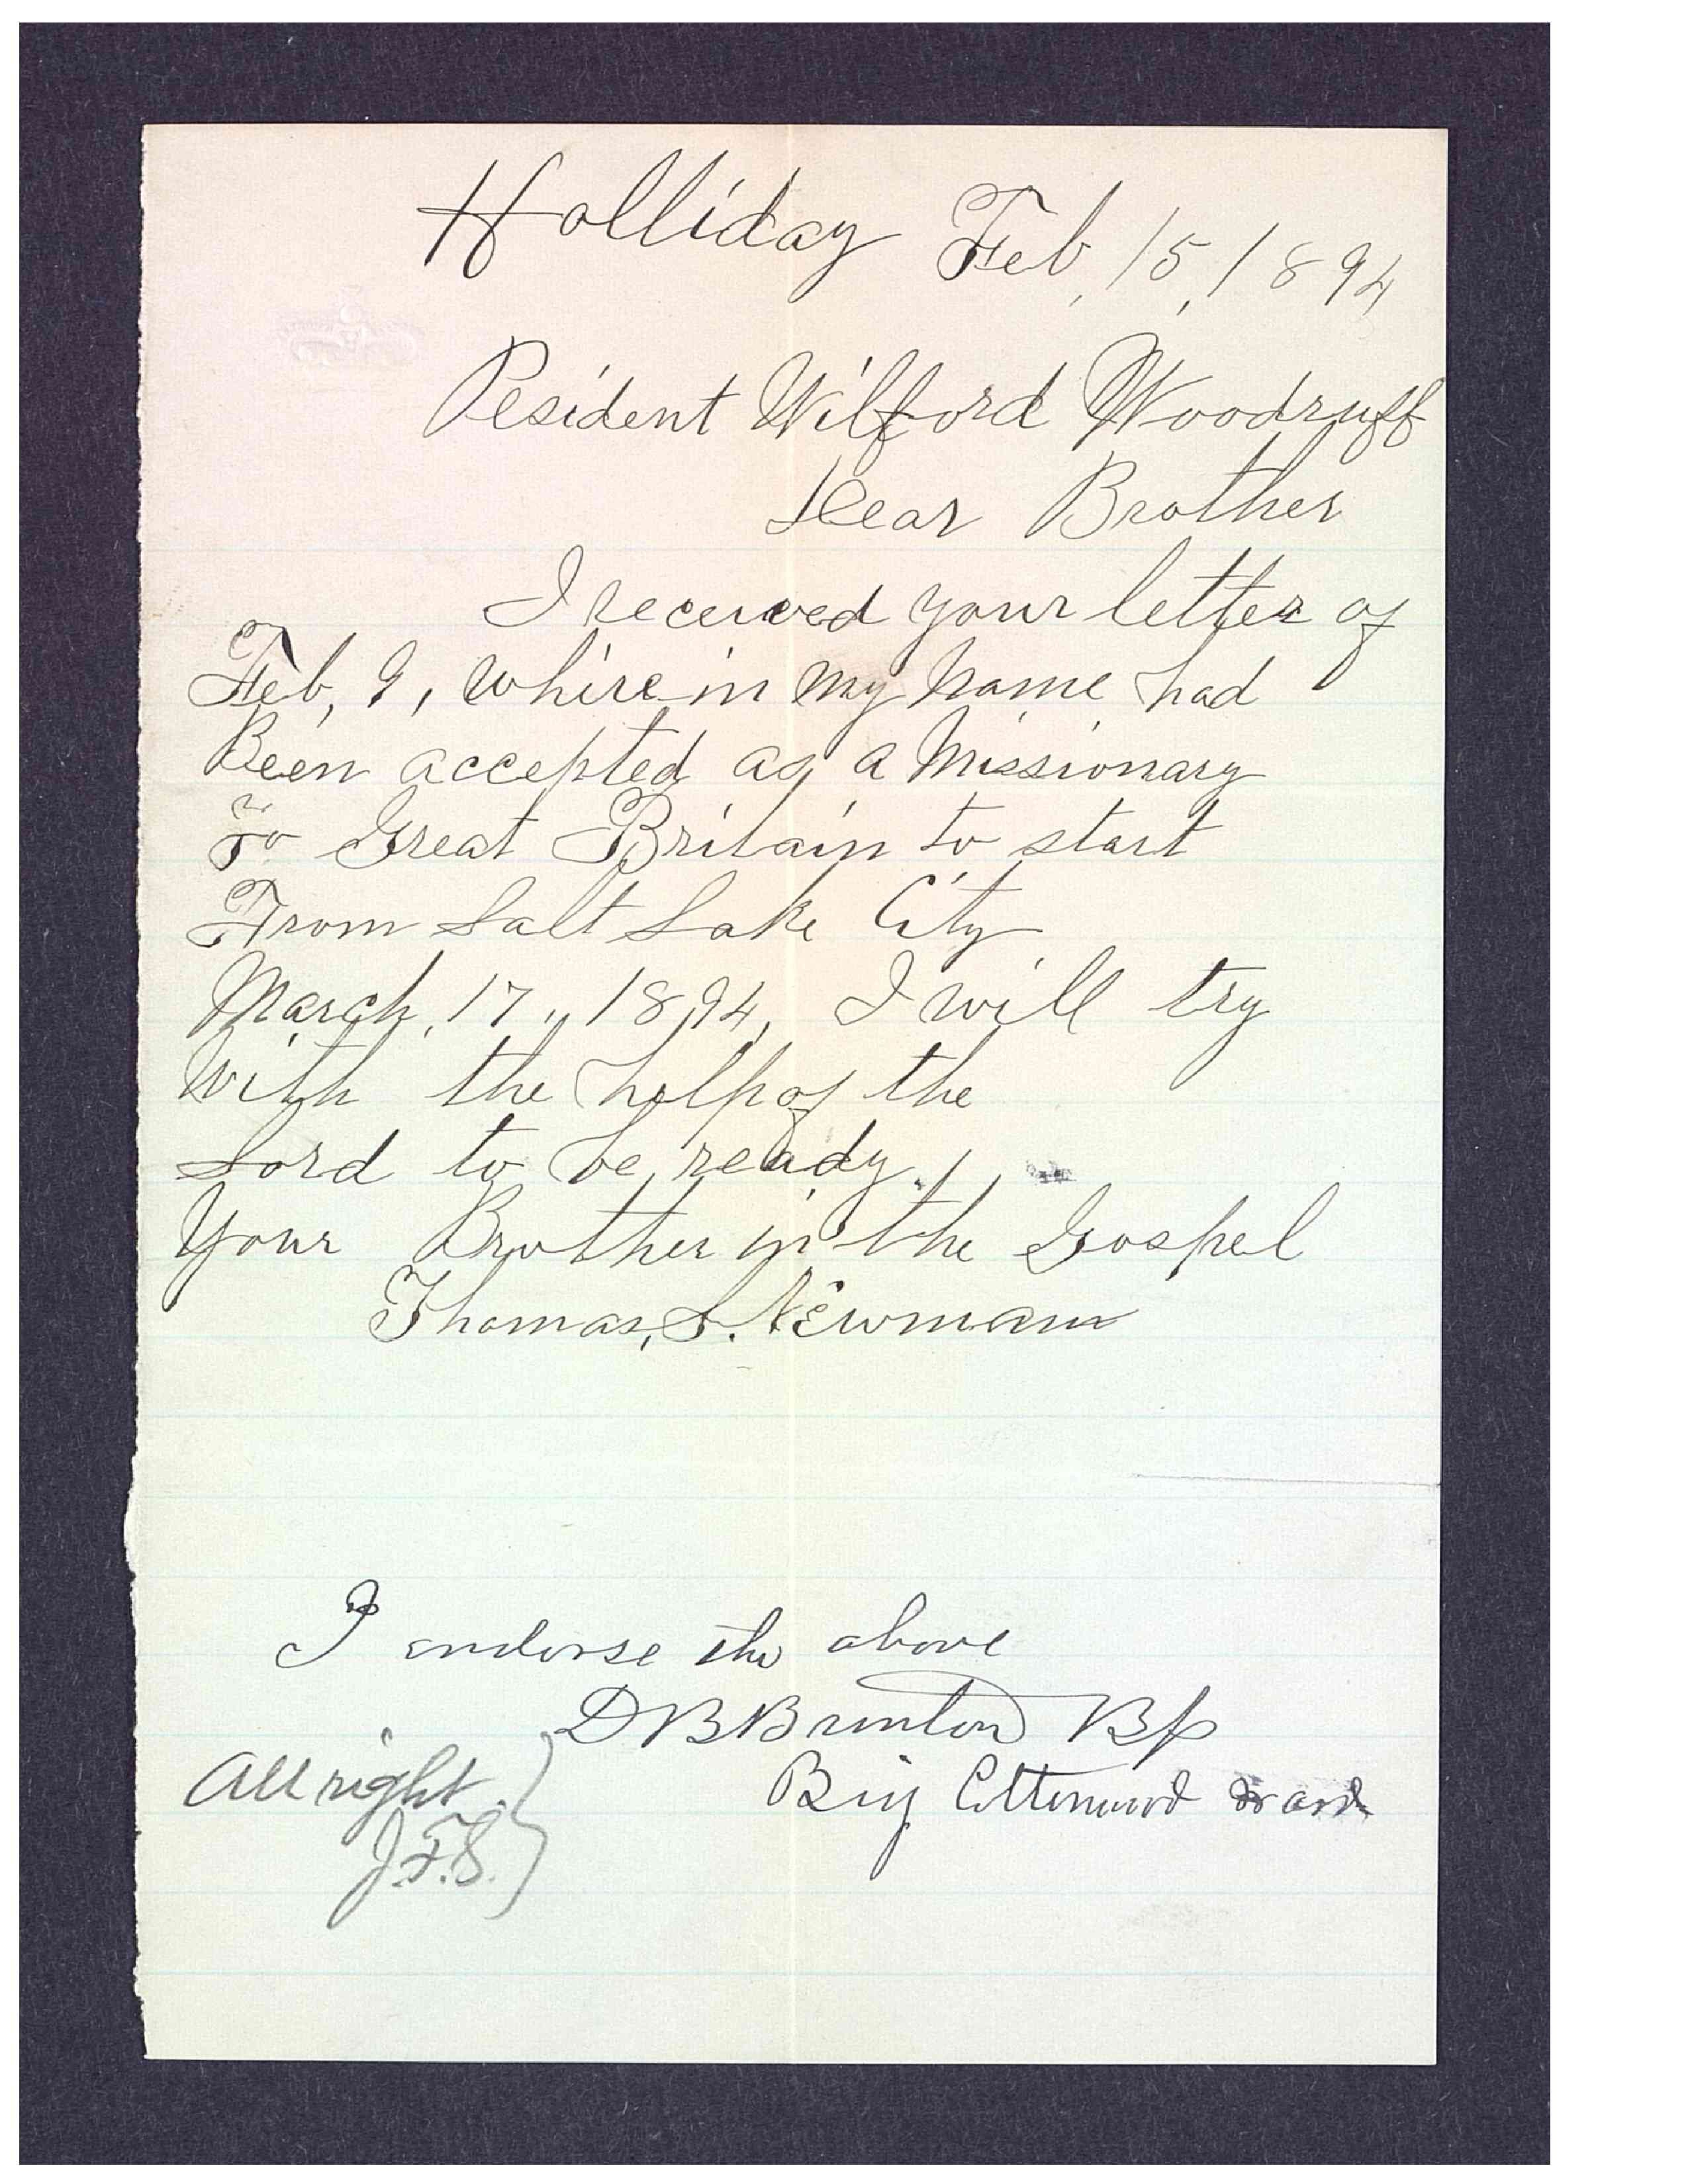 Holliday Feb, 15, 1894
Pesident Wilford Woodruff
Dear Brother
I received your letter of
Feb, 9, whirein my name had
Been accepted as a Missionary
To Great Britain to start
From Salt Lake City
March, 17, 1894, I will try
With the help of the
Lord to be ready.
Your Brother in the Gospel
Thomas, S. Newman
I endorse the above
D B Brinton Bp
Big Cottonwood ward
All right.
J.F.S.